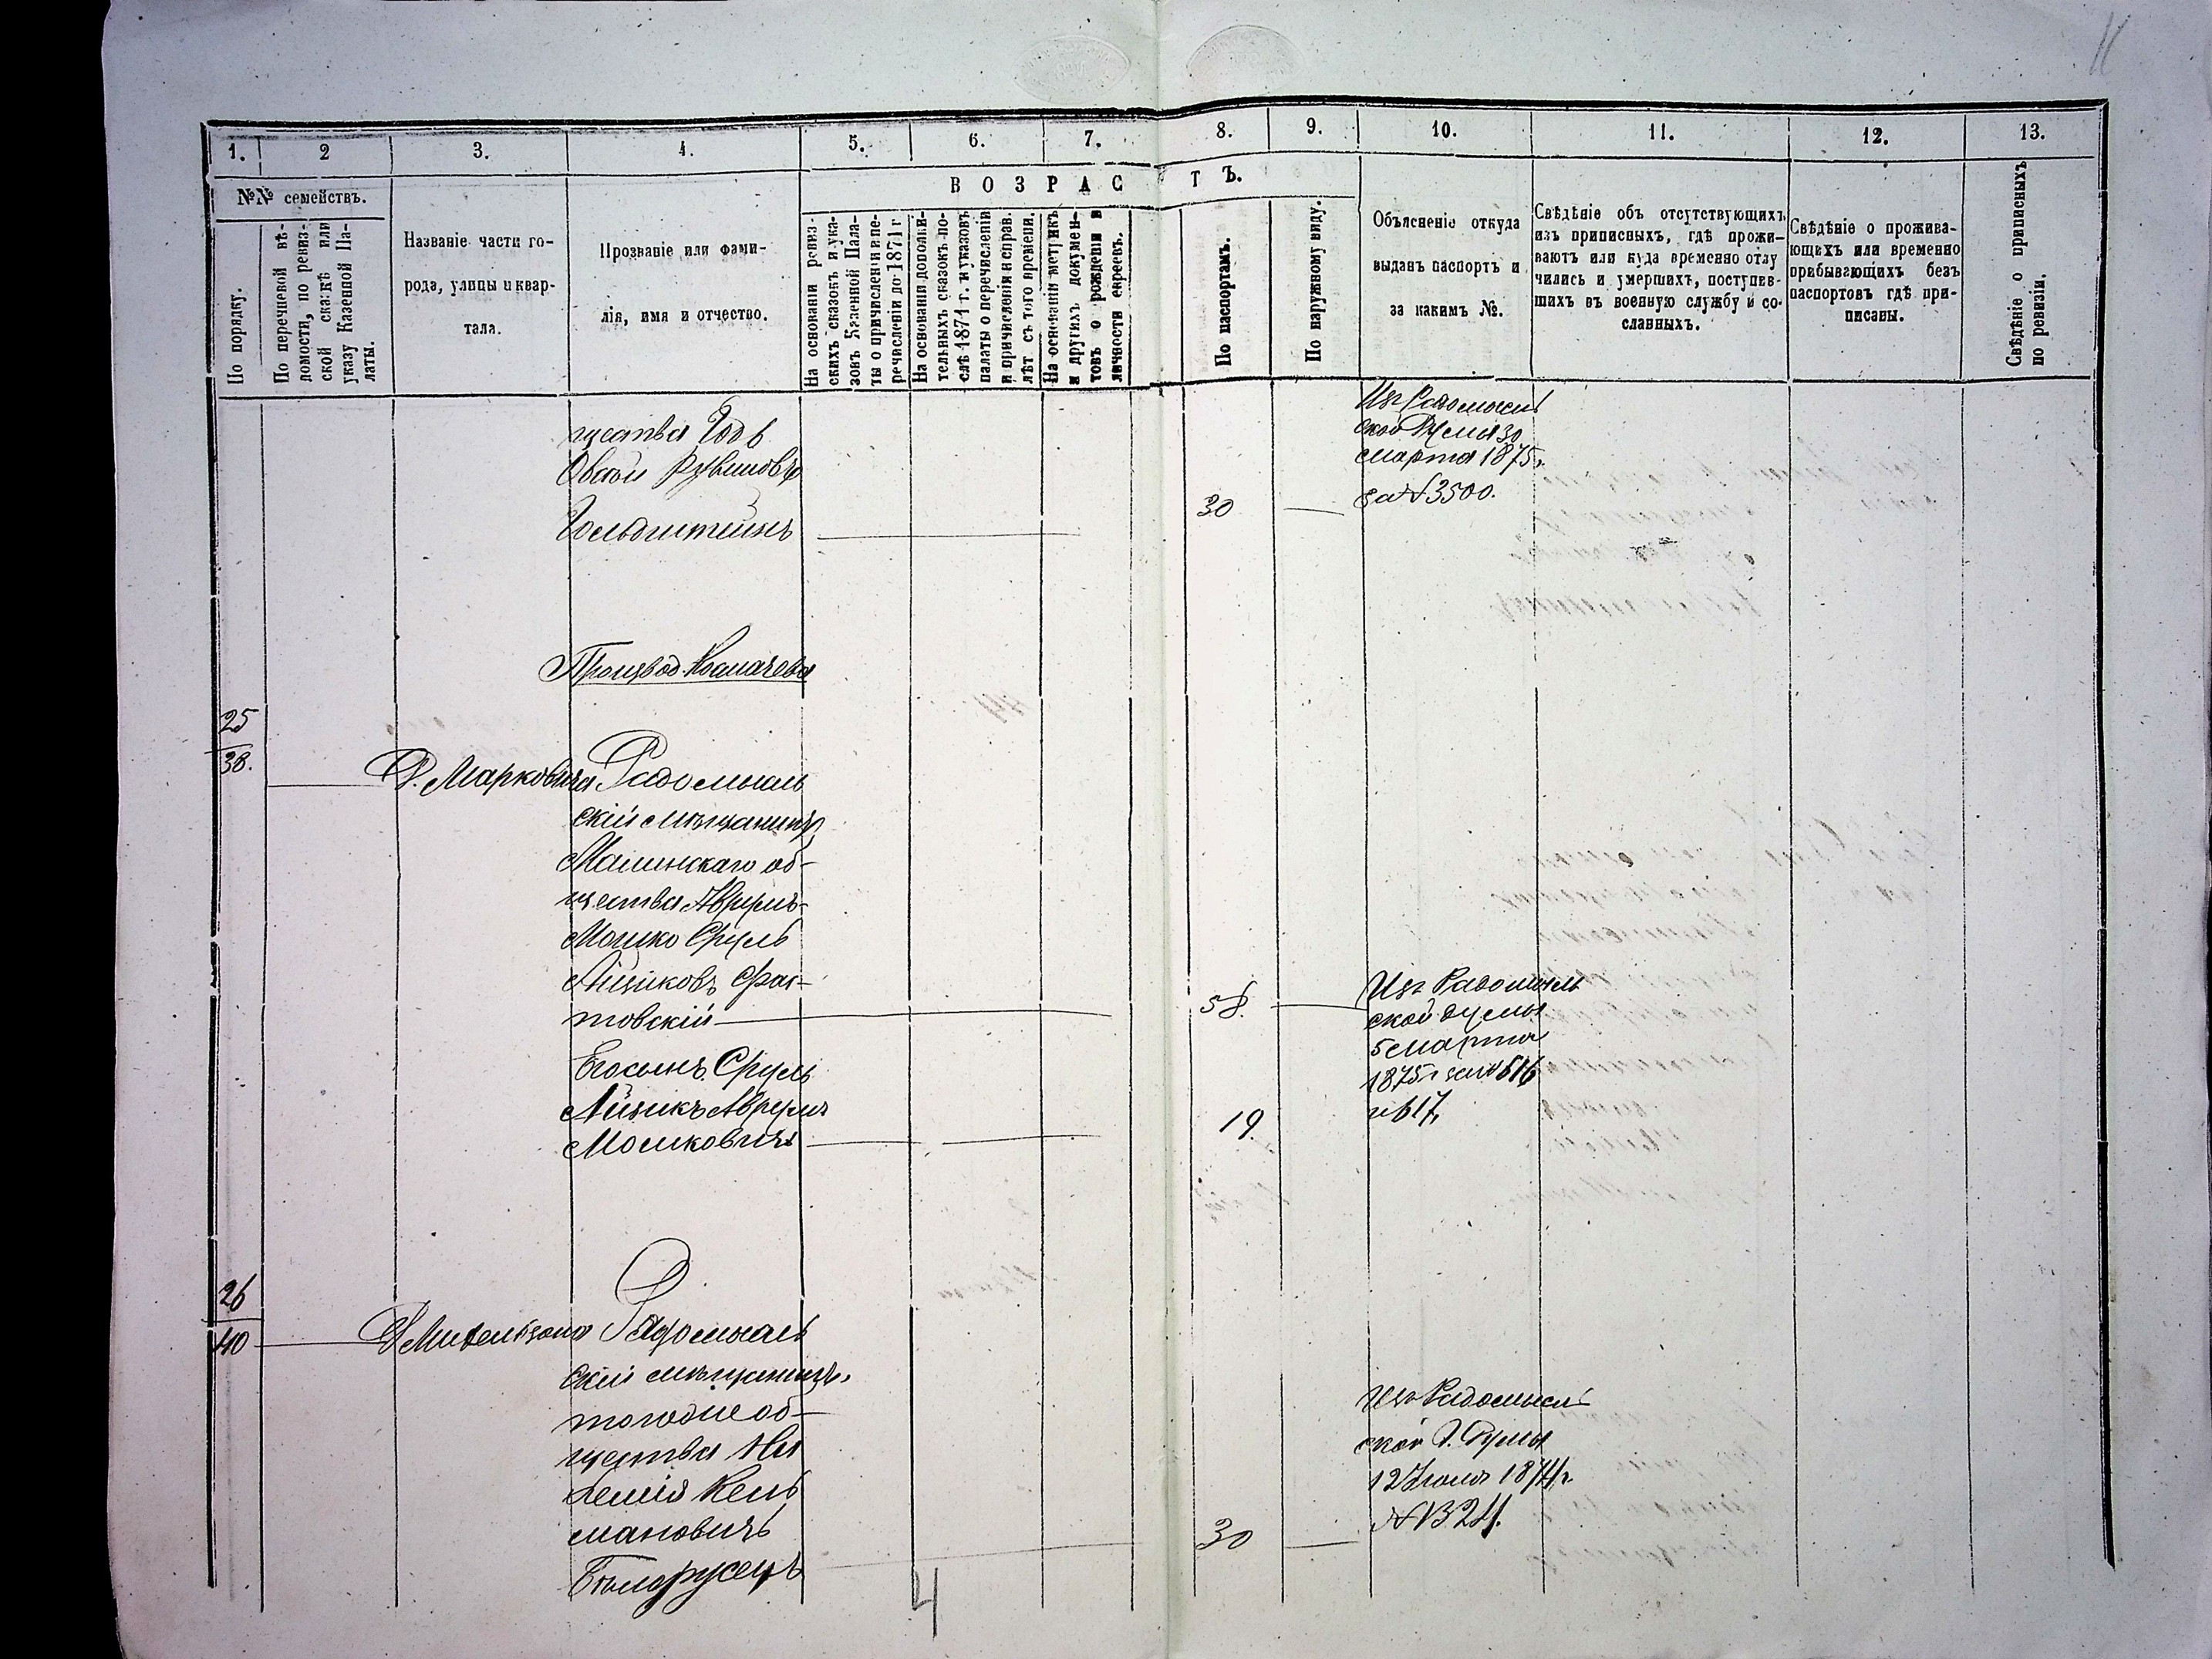 11
1. 2 3. 4. 5. 6. 7. 8. 9. 10. 11. 12. 13.
№№ семействъ.
По порядку.
По перечневой вѣ-
домости, по ревиз-
ской сказкѣ или
указу Казенной Па-
латы.
Названіе части го-
рода, улицы и квар-
тала.
Прозваніе или фами-
лія, имя и отчество.
ВОЗРАСТЪ.
На основаніи ревиз-
скихъ сказокъ и ука-
зовъ Казенной Пала-
ты о причисленіи и пе-
речисленіи до 1871 г
На основаніи дополни-
тельныхъ сказокъ по-
слѣ 1871 г. и указовъ
палаты о перечисленіи
и причисленіи и справ.
лѣт съ того времени.
На основаніи метрикъ
и другихъ докумен-
товъ о рожденіи и
личности евреевъ.
По паспортамъ.
По наружному виду.
Объясненіе откуда
выданъ паспортъ и
за какимъ №.
Свѣдѣніе объ отсутствующихъ
изъ приписныхъ, гдѣ прожи-
ваютъ или куда временно отлу
чились и умершихъ, поступив-
шихъ въ военную службу и со-
сланныхъ.
Свѣдѣніе о прожива-
ющихъ или временно
прибывающихъ безъ
паспортовъ гдѣ при-
писаны.
Свѣдѣніе о приписныхъ
по ревизіи.
щества
Овсѣй Рувиновъ
Гольдштейнъ
30
Изъ Радомысль
ской Думы 30
марта 1875 г.
за № 3500.
25
38.
Д. Марковича
Радомысль
скій мѣщанинъ
Малинскаго об-
щества Аврумъ-
Мошко Сруль
Айзиковъ Фас-
товскій
58.
Изъ Радомысль
ской думы
5 марта
1875 г за № 616
и 617,
Его сынъ Сруль
Айзикъ Аврумъ
Мошковичъ
19.
26
40
Радомысль
скій мѣщанинъ,
того же об-
щества
манович
Бѣлорусецъ
30
Изъ Радомысль
ской Г. Думы
12 Іюля 1874 г.
4